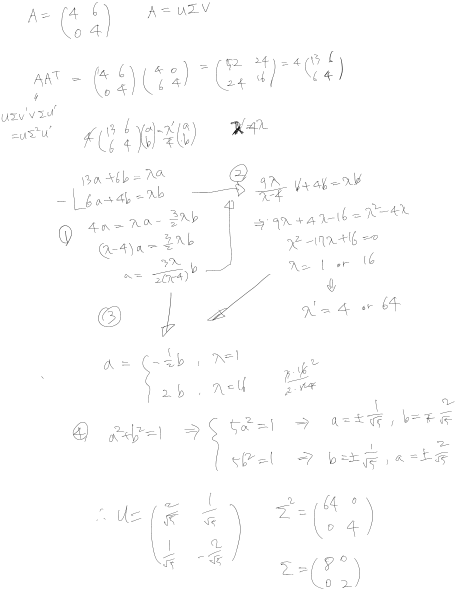 A = (4 6
0 4)   A = UΣV
AAᵀ = (4 6
0 4) (4 0
6 4) = (52 24
24 16) = 4 (13 6
6 4)
UΣV'VΣU'
= UΣ²U'
4 (13 6
6 4) (a
b) = λ'/4 (a
b)   λ' = 4λ
13a + 6b = λa
- 6a + 4b = λb
① 4a = λa - 3/2 λb
(λ-4)a = 3/2 λb
a = 3λ/2(λ-4) b
② 9λ/λ-4 b + 4b = λb
⇒ 9λ + 4λ - 16 = λ² - 4λ
λ² - 17λ + 16 = 0
λ = 1 or 16
⇓
λ' = 4 or 64
③
a = { -1/2 b , λ = 1
2b , λ = 16
④ a² + b² = 1 ⇒ { 5a² = 1 ⇒ a = ± 1/√5 , b = ∓ 2/√5
5b² = 1 ⇒ b = ± 1/√5 , a = ± 2/√5
∴ U = (2/√5 1/√5
1/√5 -2/√5)
Σ² = (64 0
0 4)
Σ = (8 0
0 2)